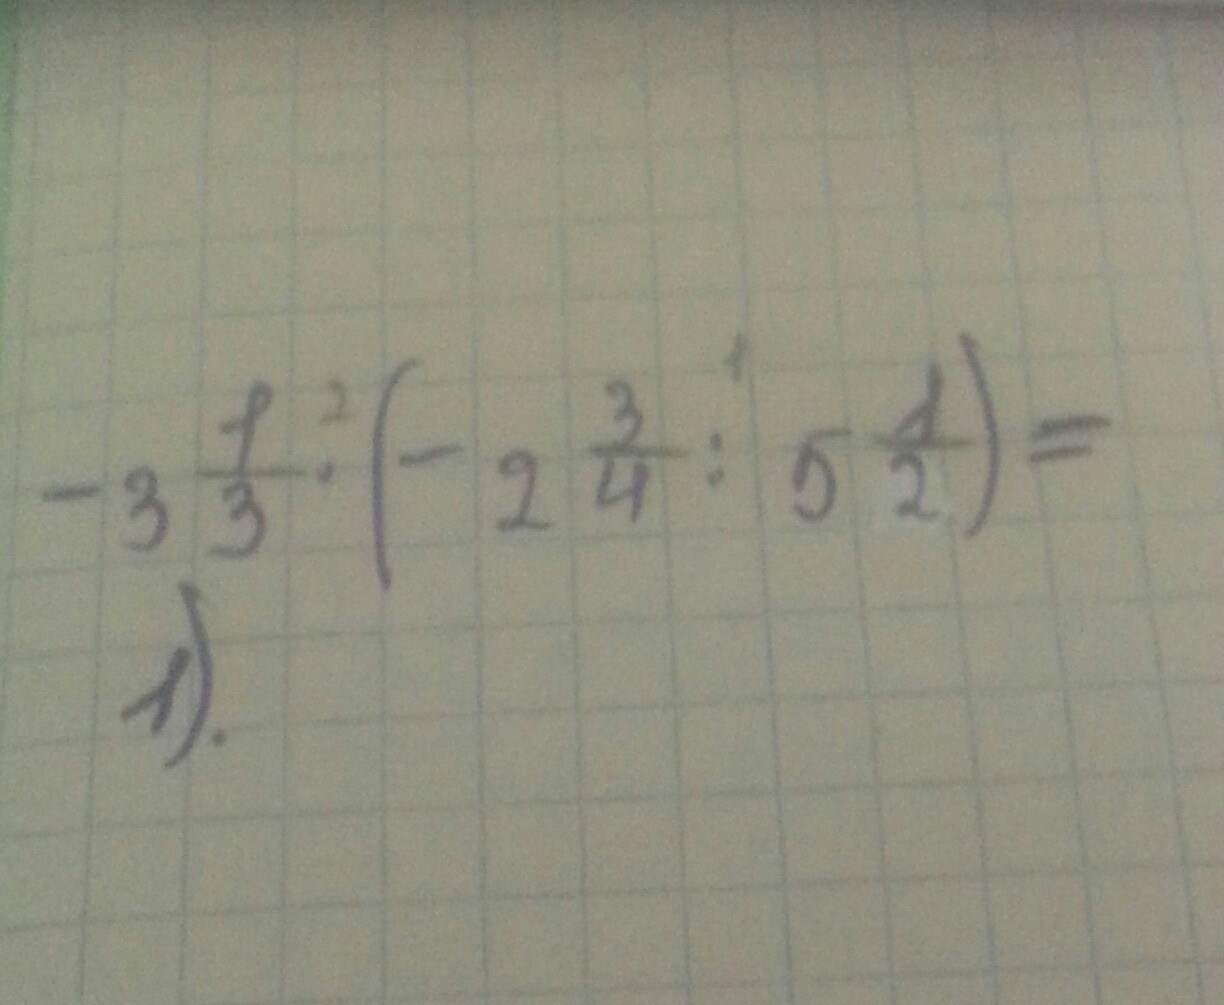 -3 1/3 ·² (-2 3/4 :¹ 5 1/2) =
1).